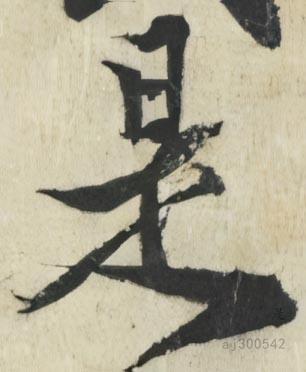 是
aj300542